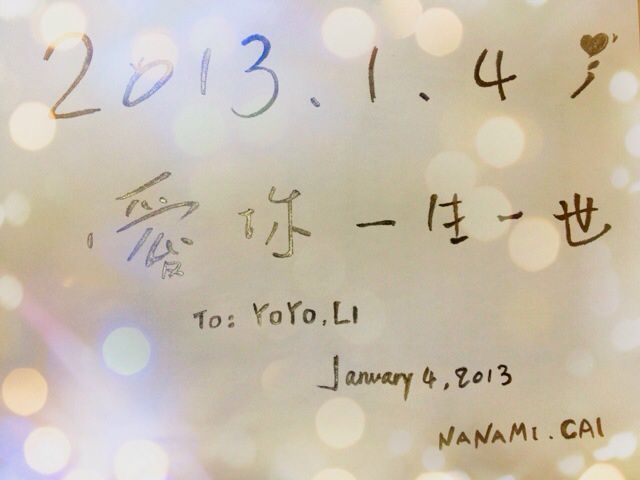 2013.1.4
愛你一生一世
To: YOYO.LI
January 4, 2013
NANAMI.CAI